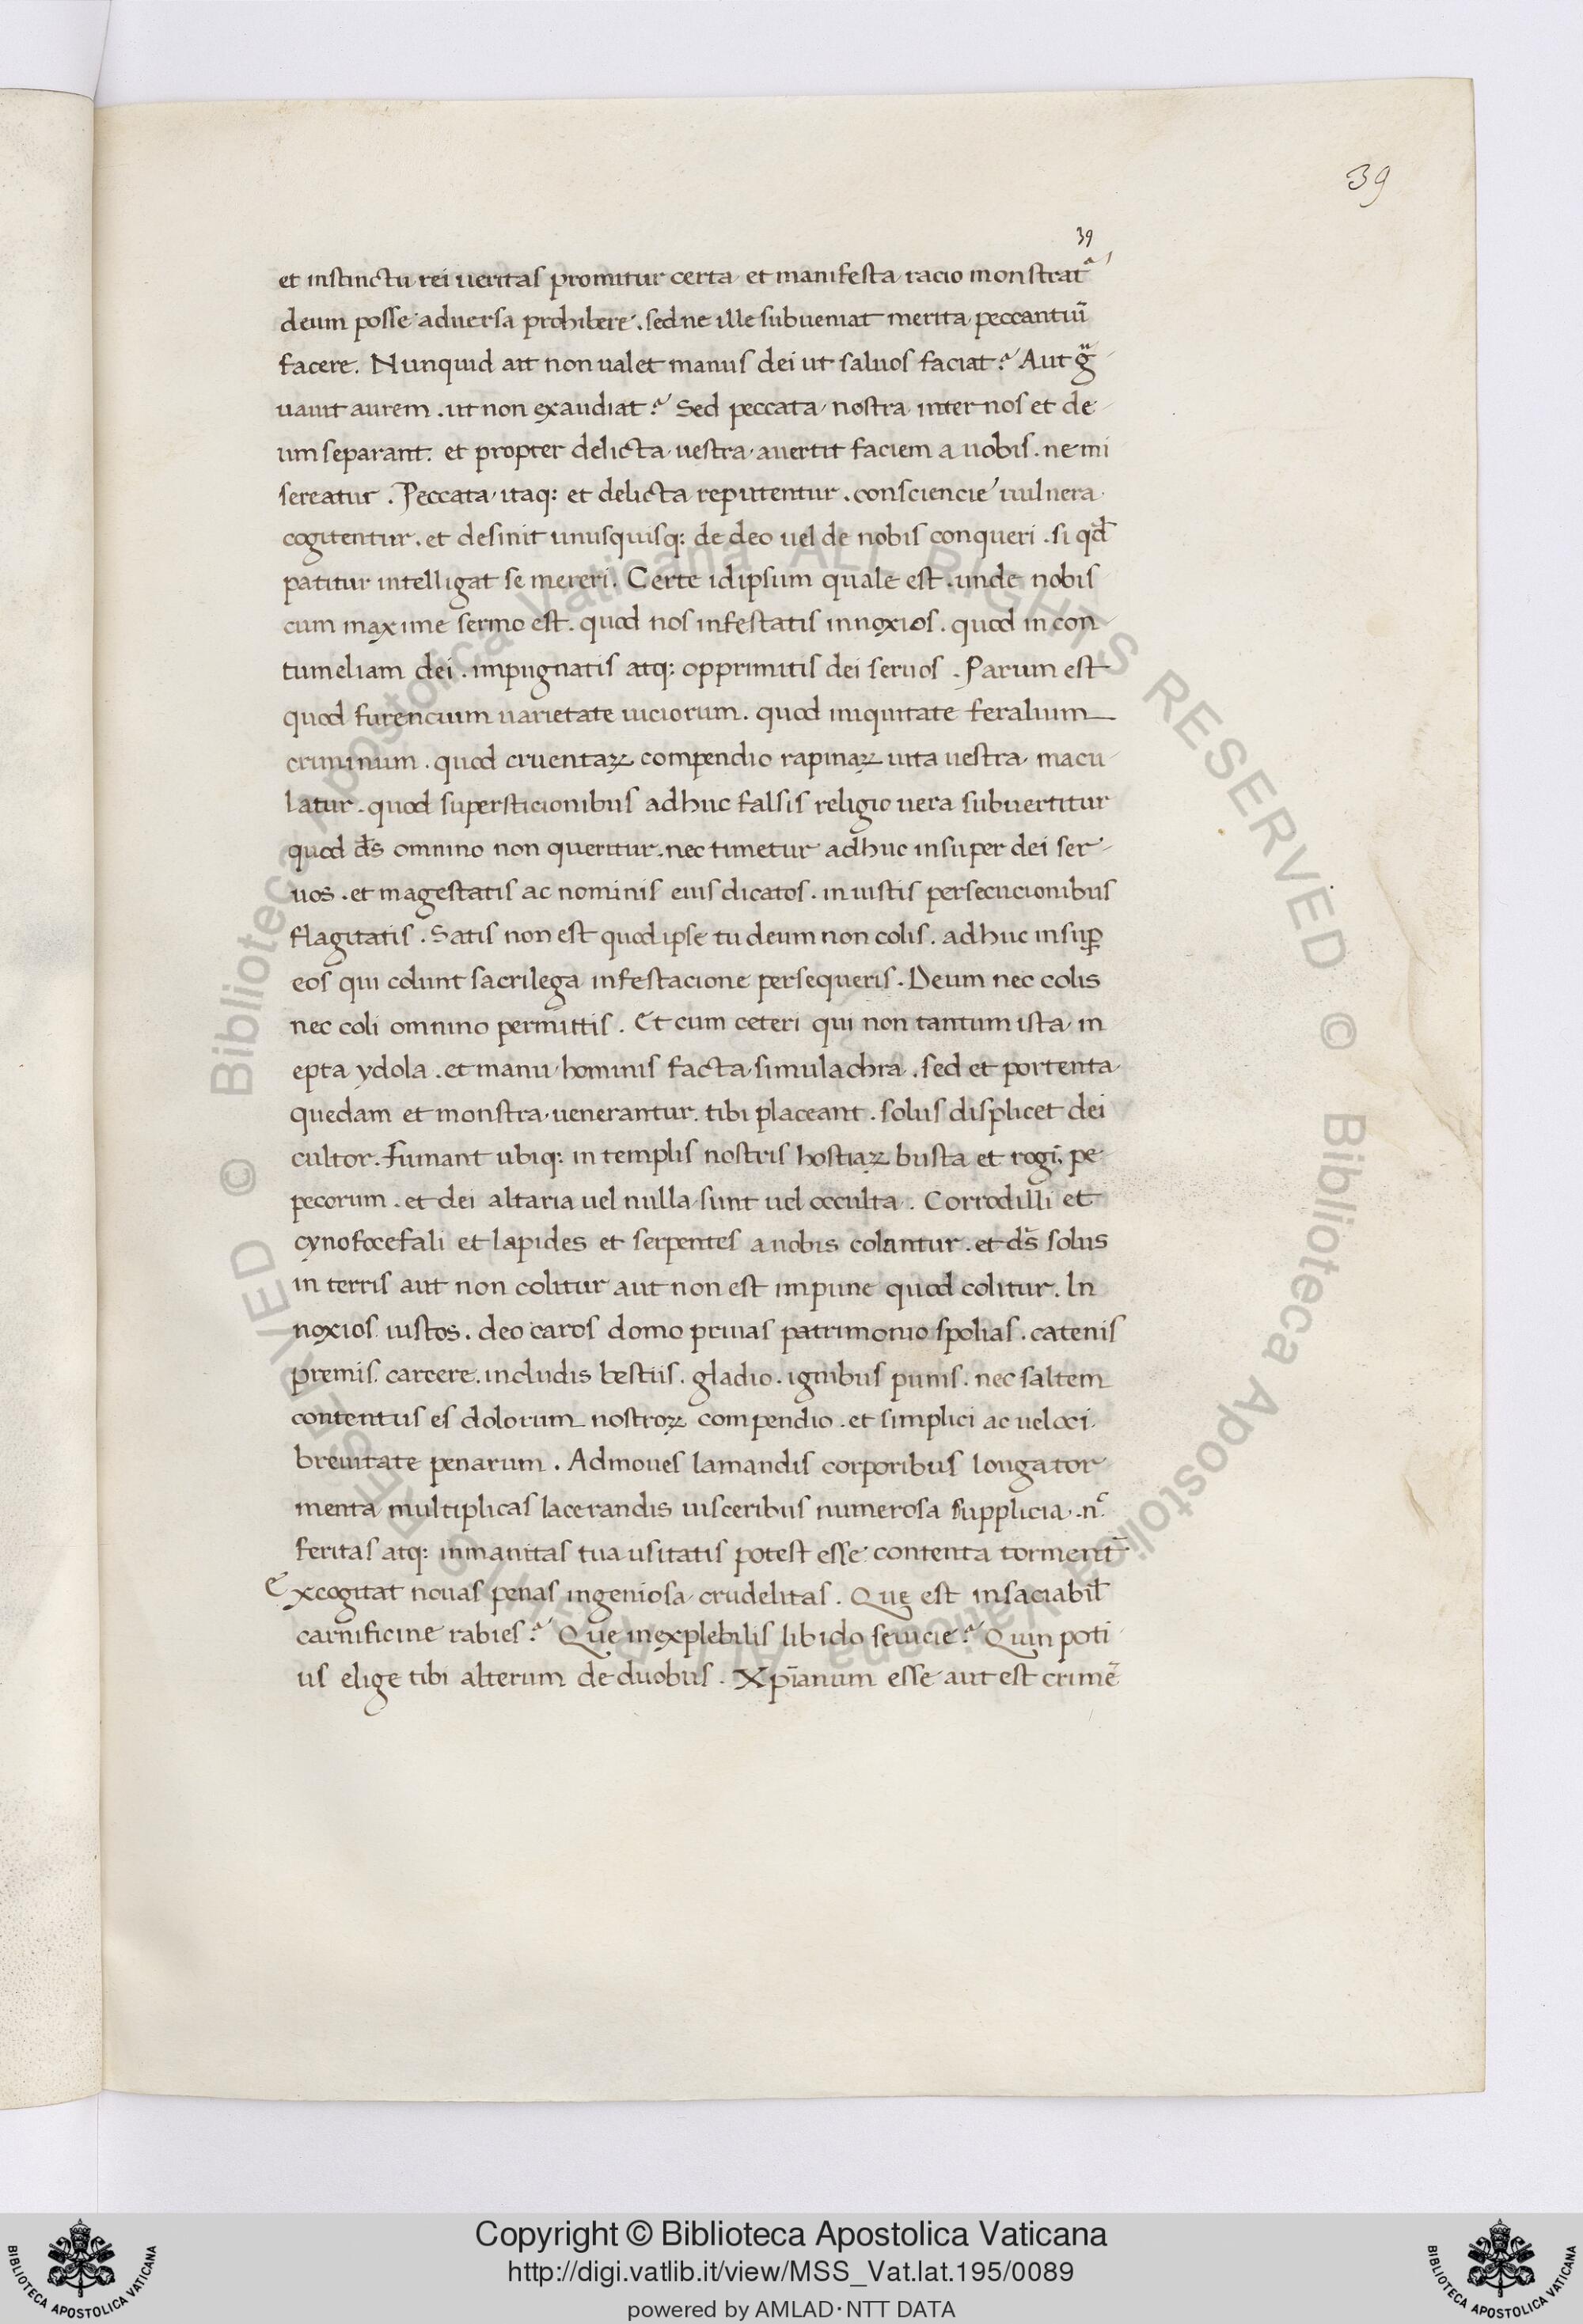 39
39
et instinctu rei ueritas promitur certa et manifesta racio monstrat
deum posse aduersa prohibere . sed ne ille subueniat merita peccantiū
facere . Nunquid ait non ualet manus dei ut saluos faciat ? Aut g̃
uauit aurem . ut non exaudiat ? Sed peccata nostra inter nos et de
um separant . et propter delicta uestra auertit faciem a uobis . ne mi
sereatur . Peccata itaq: et delicta reputentur . consciencie uulnera
cogitentur . et desinit unusquisq: de deo uel de nobis conqueri . si qd̄
patitur intelligat se mereri . Certe id ipsum quale est . unde nobis
cum maxime sermo est . quod nos infestatis innoxios . quod in con
tumeliam dei . impugnatis atq: opprimitis dei seruos . Parum est
quod furencium uarietate uiciorum . quod iniquitate feralium
criminum . quod cruentaꝝ compendio rapinaꝝ uita uestra macu
latur . quod supersticionibus adhuc falsis religio uera subuertitur
quod ds̄ omnino non queritur . nec timetur adhuc insuper dei ser
uos . et magestatis ac nominis eius dicatos . iniustis persecucionibus
flagitatis . Satis non est quod ipse tu deum non colis . adhuc insuꝑ
eos qui colunt sacrilega infestacione persequeris . Deum nec colis
nec coli omnino permittis . Et cum ceteri qui non tantum ista in
epta ydola . et manu hominis facta simulachra . sed et portenta
quedam et monstra uenerantur . tibi placeant . solus displicet dei
cultor . Fumant ubiq: in templis nostris hostiaꝝ busta et rogi , pe
pecorum . et dei altaria uel nulla sunt uel occulta . Corrodilli et
cynofocefali et lapides et serpentes a uobis colantur . et ds̄ solus
in terris aut non colitur aut non est impune quod colitur . In
noxios iustos . deo caros domo priuas patrimonio spolias . catenis
premis . carcere . includis bestiis . gladio . ignibus punis . nec saltem
contentus es dolorum nostroꝝ compendio . et simplici ac ueloci
breuitate penarum . Admoues lamandis corporibus longa tor
menta multiplicas lacerandis uisceribus numerosa supplicia . nᶜ
feritas atq: inmanitas tua usitatis potest esse contenta torment̄
Excogitat nouas penas ingeniosa crudelitas . Quę est insaciabil̄
carnificine rabies ? Que inexplebilis libido seuicie ? Quin poti
us elige tibi alterum de duobus . Xpīanum esse aut est crimē
Copyright © Biblioteca Apostolica Vaticana
http://digi.vatlib.it/view/MSS_Vat.lat.195/0089
powered by AMLAD·NTT DATA
BIBLIOTECA APOSTOLICA VATICANA
BIBLIOTECA APOSTOLICA VATICANA